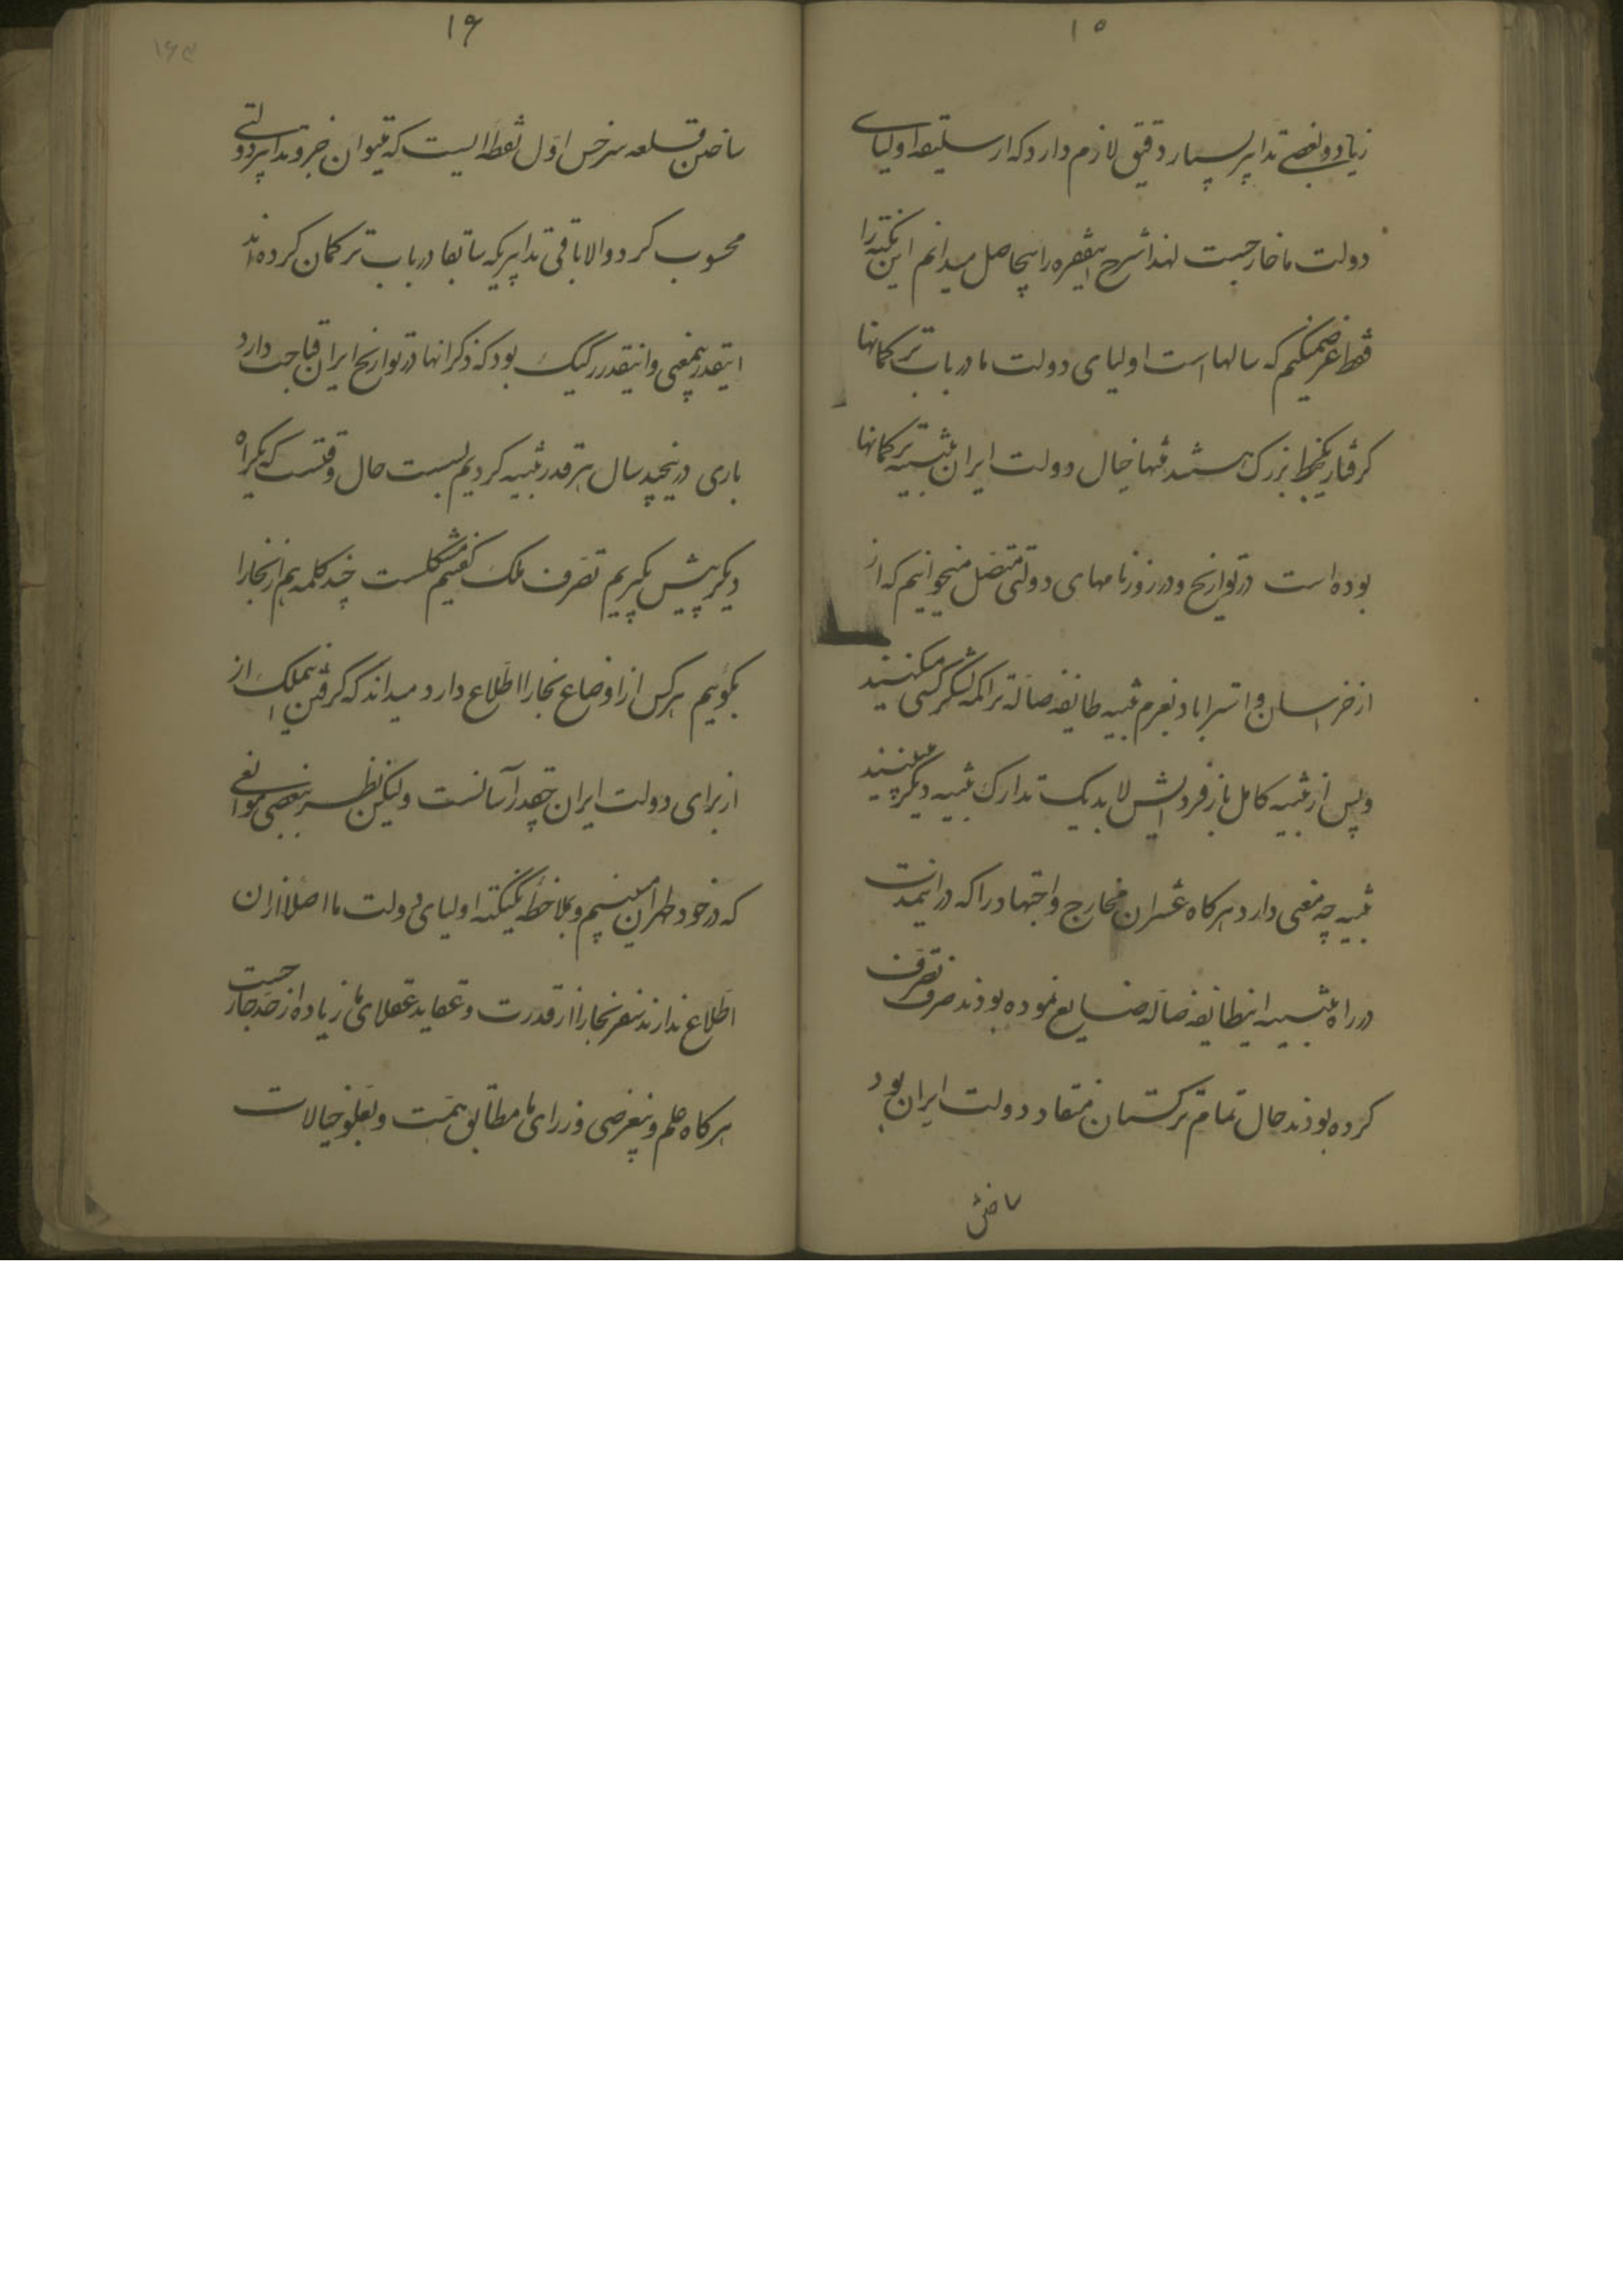 ۱۵
زیاد و بعضی تدابیر بسیار دقیق لازم دارد که از سلیقه اولیای
دولت ما خارجست لهذا شرح اینفقره را بیحاصل میدانم این نکته را
فقط عرض میکنم که سالهاست اولیای دولت ما در باب ترکمانها
گرفتار یک خبط بزرگ هستند تنها خیال دولت ایران تنبیه ترکمانها
بوده است در تواریخ و در روزنامهای دولتی متصل میخوانیم که از
از خراسان و استراباد بعزم تنبیه طایفه ضاله تراکمه لشکر کشی میکنند
و پس از تنبیه کامل باز فردایش لابد یک تدارک تنبیه دیگر میبینند
تنبیه چه معنی دارد هرگاه عشر ان مخارج و اجتهاد را که در اینمدت
در راه تنبیه اینطایفه ضاله ضایع نموده بودند صرف تصرف
کرده بودند حال تمام ترکستان منقاد دولت ایران بود
ساختن
۱۶
۱۶۳
ساختن قلعه سرخس اول نقطه ایست که میتوان جزو تدابیر دولتی
محسوب کرد و الا باقی تدابیریکه سابقا در باب ترکمان کرده اند
اینقدر بیمعنی و اینقدر رکیک بود که ذکر انها در تواریخ ایران قباحت دارد
باری در اینچند سال هر قدر تنبیه کردیم بس است حال وقتست که یکراه
دیگر پیش بگیریم تصرف ملک گفتیم مشکلست چند کلمه هم از بخارا
بگوئیم هرکس از اوضاع بخارا اطلاع دارد میداند که گرفتن اینملک از
از برای دولت ایران چقدر آسانست ولیکن نظر ببعضی موانعی
که در خود طهران میبینم و بملاحظه اینکه اولیای دولت ما اصلا از ان
اطلاع ندارند سفر بخارا از قدرت و عقاید عقلای ما زیاده از حد خارجست
هرگاه علم و بیغرضی وزرای ما مطابق همت و بعلو خیالات